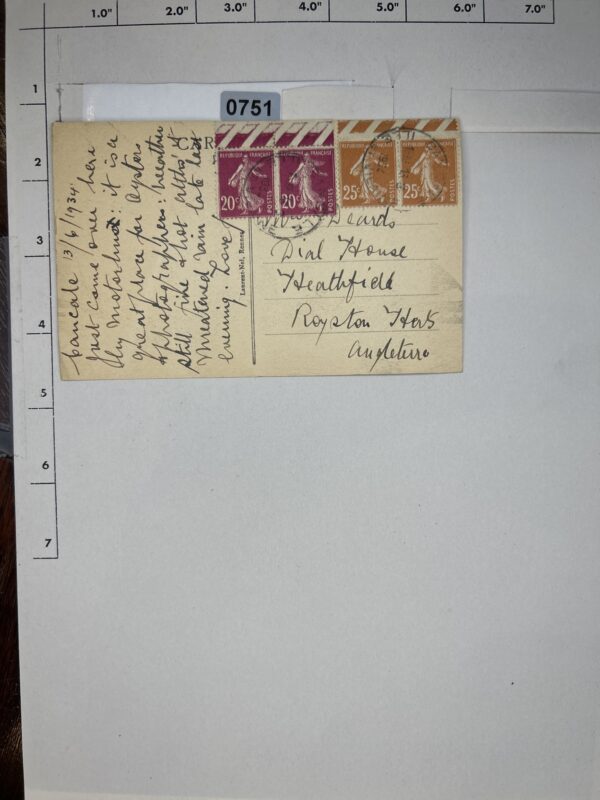 1.0" 2.0" 3.0" 4.0" 5.0" 6.0" 7.0"
1
2
3
4
5
6
7
0751
Cancale 13/6/1934.
Just come over here
by Motorbus: it is a
great place for Oysters
& photographers: weather
still fine & hot altho' it
threatened rain late last
evening. Love
CAR
REPUBLIQUE FRANÇAISE
20c
POSTES
REPUBLIQUE FRANÇAISE
20c
POSTES
REPUBLIQUE FRANÇAISE
25c
POSTES
REPUBLIQUE FRANÇAISE
25c
POSTES
Laurent-Nel, Rennes
Deards
Dial House
Heathfield
Royston Herts
Angleterre